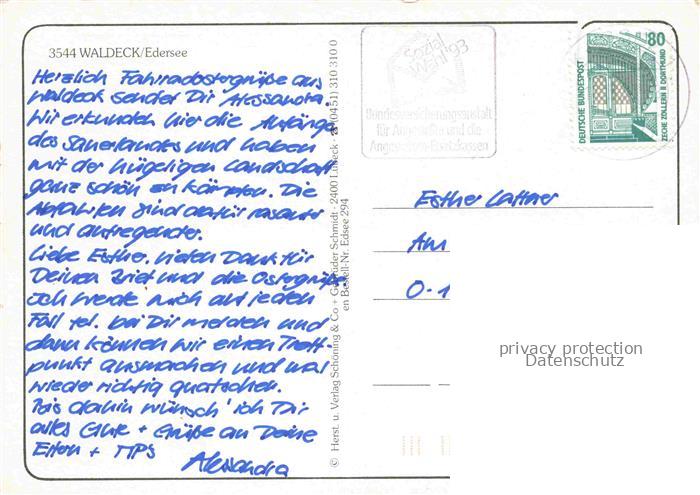 3544 WALDECK/Edersee
Herzlich Fahrradostergrüße aus
Waldeck sendet Dir Alessandra.
Wir erkunden hier die Anfänge
des Sauerlandes und haben
mit der hügeligen Landschaft
ganz schön zu kämpfen. Die
Abfahrten sind dafür rasanter
und aufregender.
Liebe Esther, vielen Dank für
Deinen Brief und die Ostergrüße
Ich werde mich auf jeden
Fall tel. bei Dir melden und
dann können wir einen Treff-
punkt ausmachen und mal
wieder richtig quatschen.
Bis dahin wünsch' ich Dir
alles Gute + Grüße an Deine
Eltern +
Alessandra
© Herst. u. Verlag Schöning & Co + Gebrüder Schmidt · 2400 Lübeck · ☎ (0451) 310 310 0
en Bestell-Nr. Edsee 294
Sozial
Wahl '93
Bundesversicherungsanstalt
für Angestellte und die
Angestellten-Ersatzkassen
80
DEUTSCHE BUNDESPOST
ZECHE ZOLLERN II DORTMUND
Esther
Am
O-1
privacy protection
Datenschutz